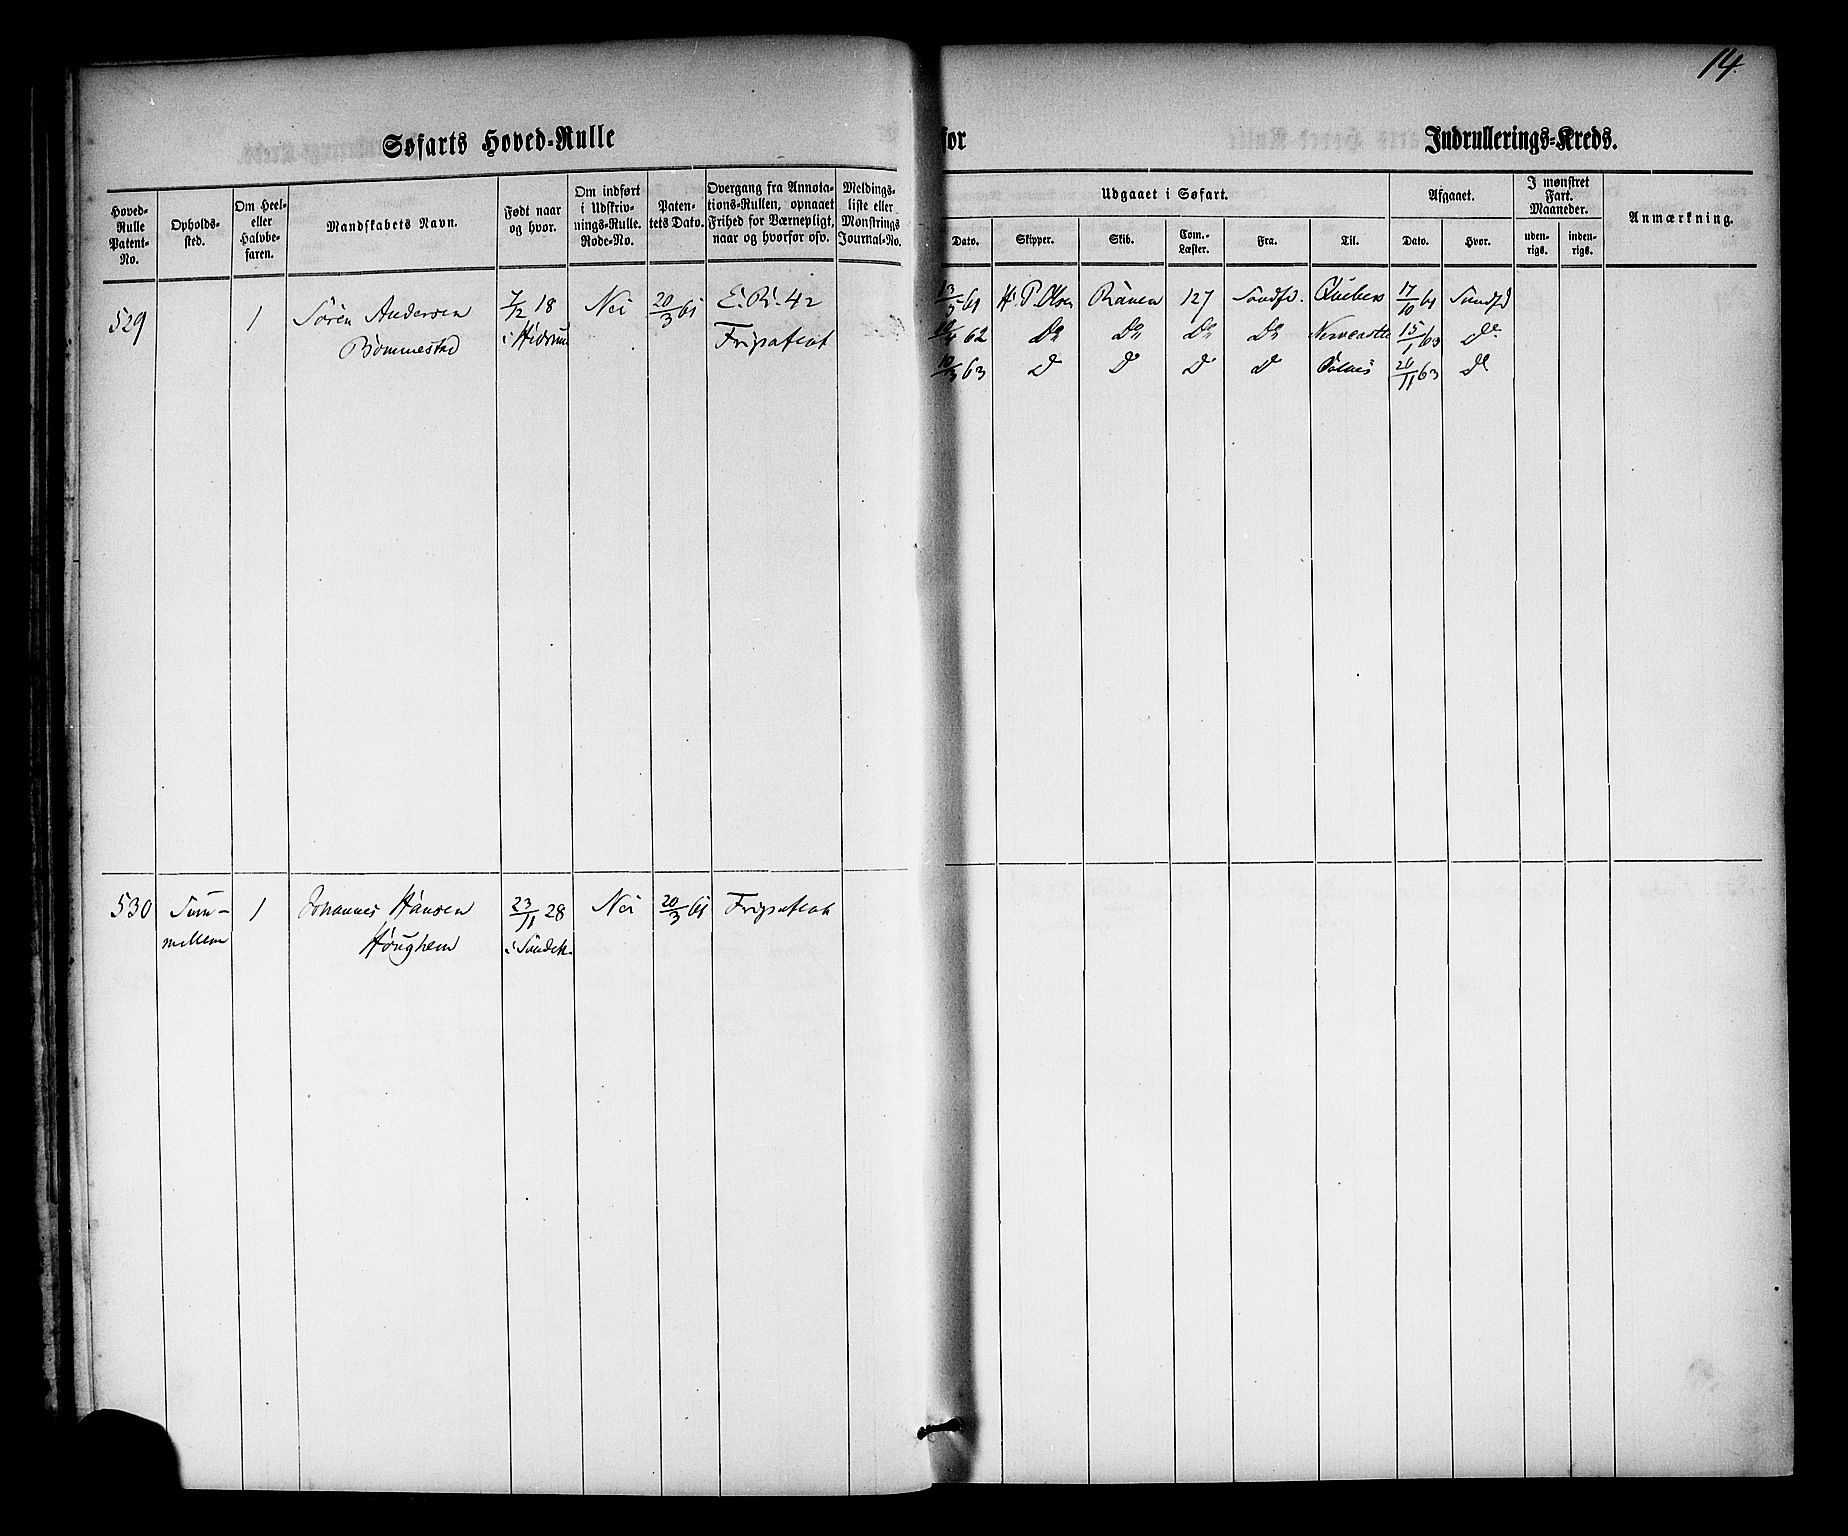 14.
Søfarts Hoved-Rulle
for
Indrullerings-Kreds.
Hoved-Rulle Patent-No.
Opholds-sted.
Om Heel- eller Halvbe-faren.
Mandskabets Navn.
Født naar og hvor.
Om indført i Udskriv-nings-Rulle. Rode-No.
Paten-tets Dato.
Overgang fra Annota-tions-Rullen, opnaaet Frihed for Værnepligt, naar og hvorfor osv.
Meldings-liste eller Mønstrings Journal-No.
Udgaaet i Søfart.
Dato.
Skipper.
Skib.
Com.-Læster.
Fra.
Til.
Afgaaet.
Dato.
Hvor.
I mønstret Fart. Maaneder.
uden-rigs.
inden-rigs.
Anmærkning.
529 1 Søren Andersen 7/2 18 Nei 20/3 61 E. R. 42
Bommestad i Hedrum Fripatent
13/5 61 H. P. Olsen Ranen 127 Sandfd. Quebec 17/10 61 Sandfd
62 Do Do Do Do Newcastle 15/1 63 Do
10/3 63 D D D D 26/11 63 Do
530 Sum- 1 Johannes Hansen 23/11 28 Nei 20/3 61 Fripatent
mellem Haughem i Sandeh.